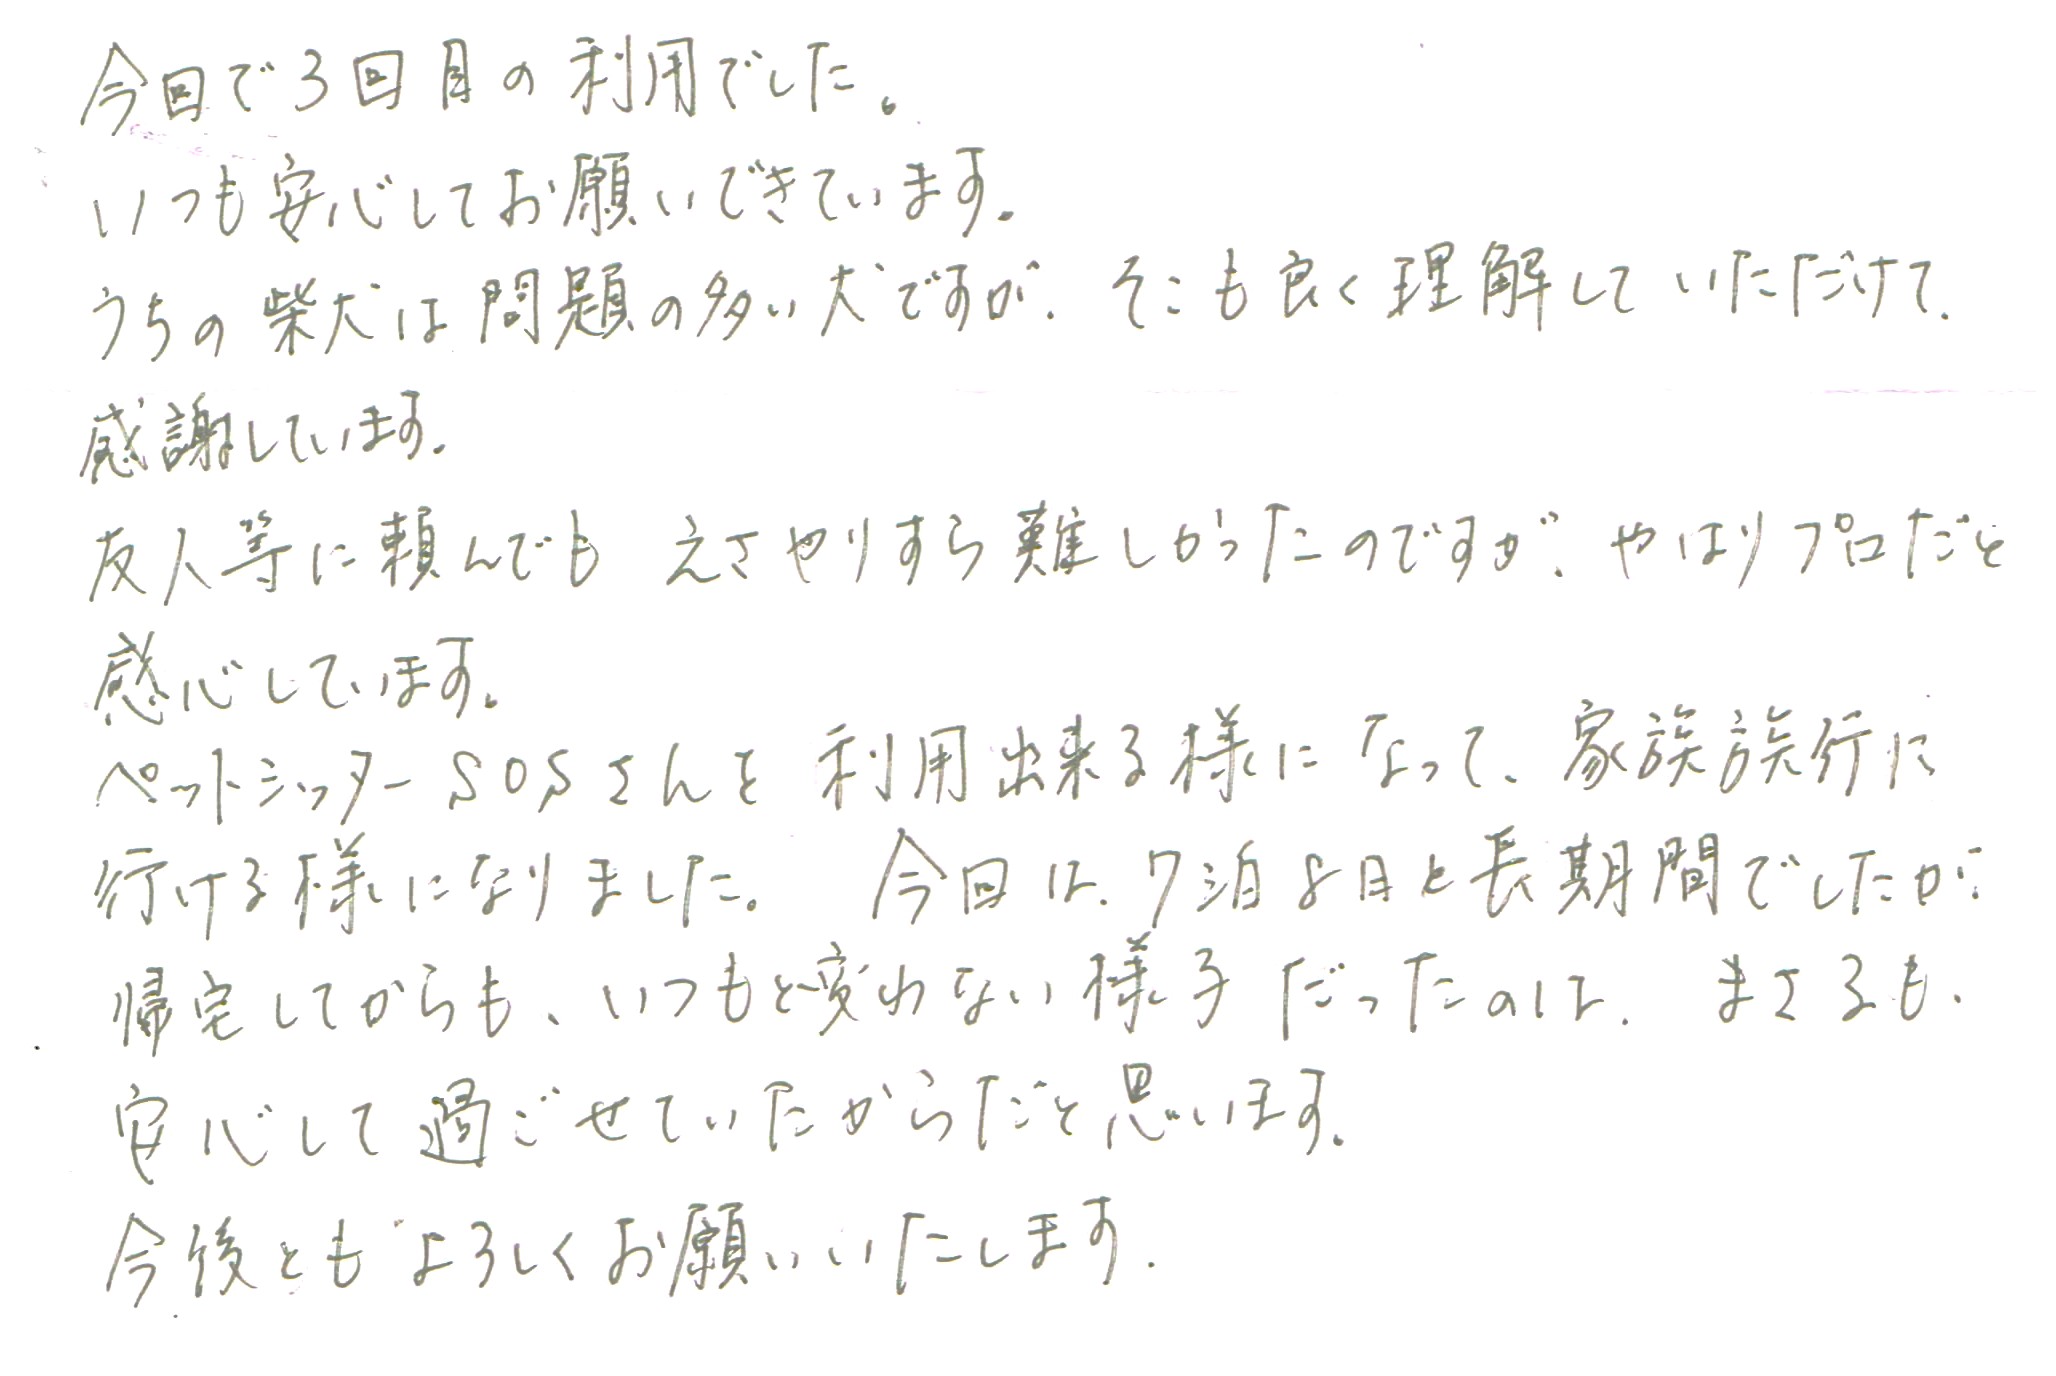 今回で3回目の利用でした。
いつも安心してお願いできています。
うちの柴犬は問題の多い犬ですが、そこも良く理解していただけて、
感謝しています。
友人等に頼んでも えさやりすら難しかったのですが、やはりプロだと
感心しています。
ペットシッターSOSさんを利用出来る様になって、家族旅行に
行ける様になりました。 今回は、7泊8日と長期間でしたが、
帰宅してからも、いつもと変わない様子だったのは、まさるも、
安心して過ごせていたからだと思います。
今後ともよろしくお願いいたします。